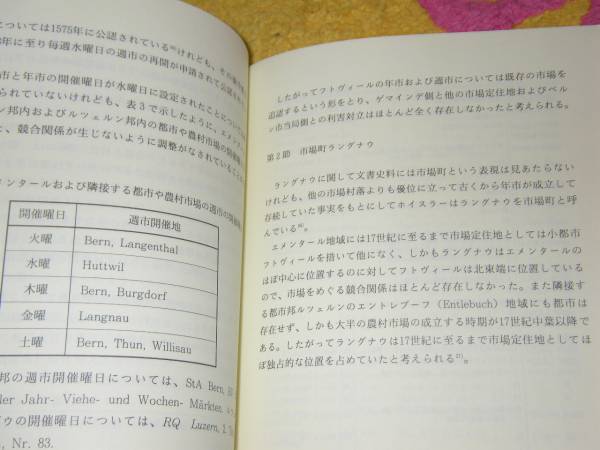 については1575年に公認されている⁽⁶⁾けれども、その
年に至り毎週水曜日の週市の再開が申請されて公認され
市と年市の開催曜日が水曜日に設定されたことについては
られていないけれども、表3で示したように、エメンタ
ン邦内およびルツェルン邦内の都市や農村市場の開催
、競合関係が生じないように調整がなされていること
ンタールおよび隣接する都市や農村市場の週市の開催曜日
開催曜日 週市開催地
火曜 Bern, Langenthal
水曜 Huttwil
木曜 Bern, Burgdorf
金曜 Langnau
土曜 Bern, Thun, Willisau
邦の週市開催曜日については、StA Bern,
ler Jahr- Viehe- und Wochen- Märkten.
ゥの開催曜日については、RQ Luzern,
, Nr. 83.
したがってフトヴィールの年市および週市については既存の市場を
追認するという形をとり、ゲマインデ側と他の市場定住地およびベル
ン市当局側との利害対立はほとんど全く存在しなかったと考えられる。
第2節 市場町ラングナウ
ラングナウに関して文書史料には市場町という表現は見あたらない
けれども、他の市場村落よりも優位に立って古くから年市が成立して
存続していた事実をもとにしてホイスラーはラングナウを市場町と呼
んでいる⁽⁸⁾。
エメンタール地域には17世紀に至るまで市場定住地としては小都市
フトヴィールを措いて他になく、しかもラングナウはエメンタールの
ほぼ中心に位置するのに対してフトヴィールは北東端に位置している
ので、市場をめぐる競合関係はほとんど存在しなかった。また隣接す
る都市邦ルツェルンのエントレブーフ（Entlebuch）地域にも都市は
存在せず、しかも大半の農村市場の成立する時期が17世紀中葉以降で
ある。したがってラングナウは17世紀に至るまで市場定住地としてほ
ぼ独占的な位置を占めていたと考えられる²⁾。